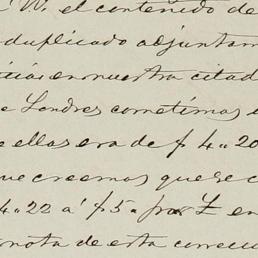 W. el contenido de
duplicado adjuntam
icias en nuestra citad
e Londres cometimos e
e ellas era de $ 4.. 20
ue creemos que se c
4.. 22 a' $5.. por £ en
nota de esta correcc